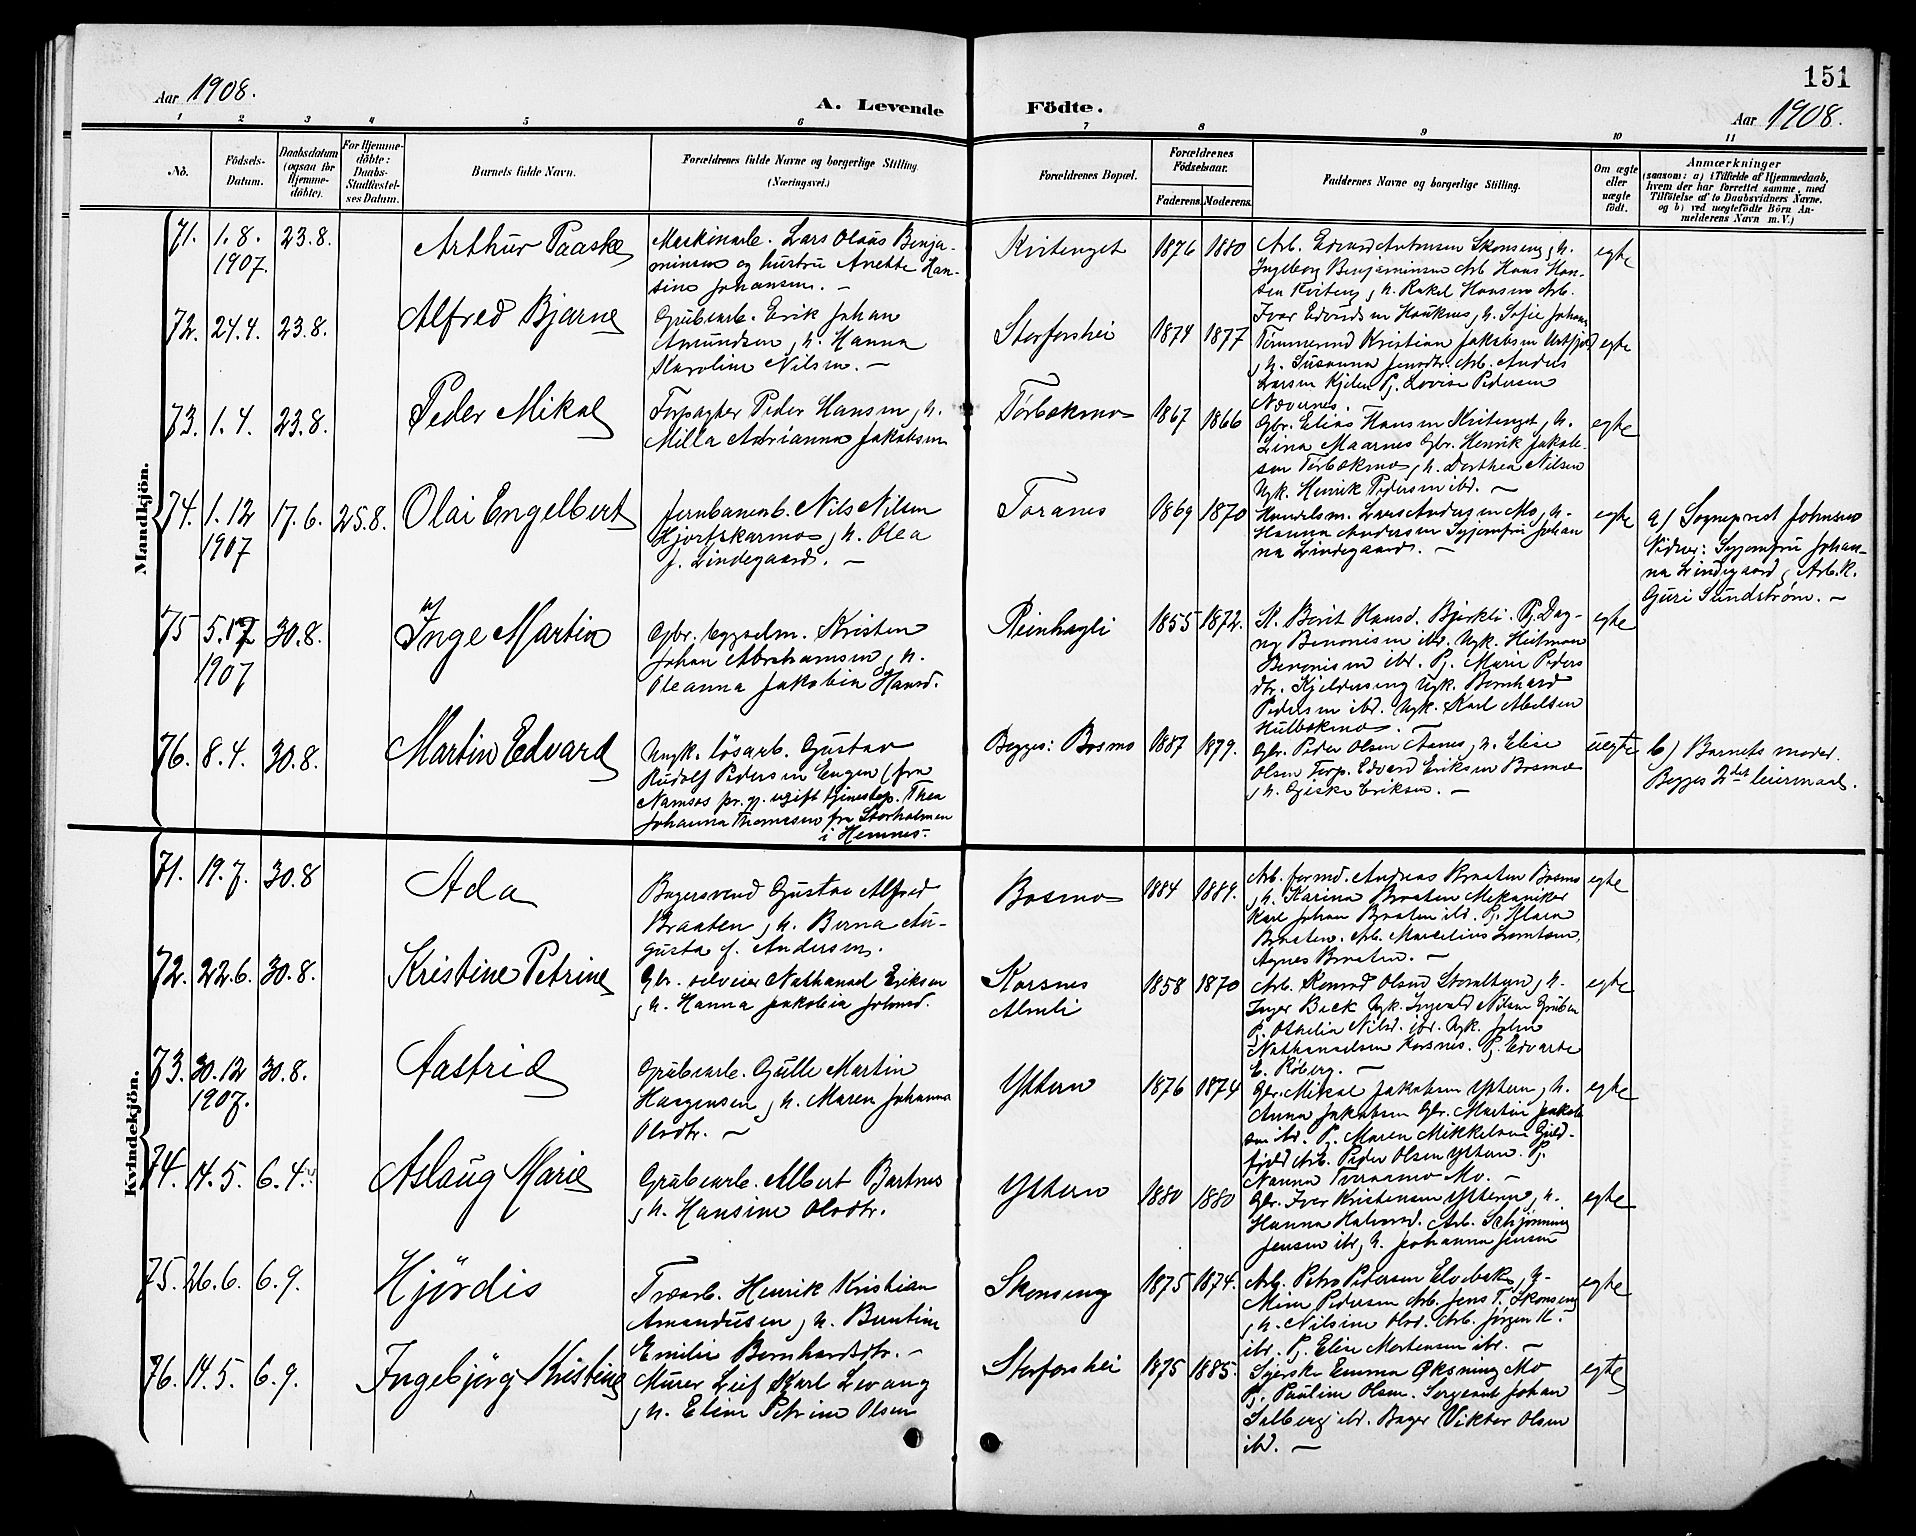 151
Aar 1908.
A. Levende Födte.
Aar 1908.
1 2 3 4 5 6 7 8 9 10 11
No.
Födsels-
Datum.
Daabsdatum
(ogsaa for
Hjemme-
döbte).
For Hjemme-
döbte:
Daabs-
Stadfæstel-
ses Datum.
Barnets fulde Navn.
Forældrenes fulde Navne og borgerlige Stilling
(Næringsvei.)
Forældrenes Bopæl.
Forældrenes
Födselsaar.
Faderens. Moderens.
Faddernes Navne og borgerlige Stilling.
Om ægte
eller
uægte
födt.
Anmærkninger
(saasom: a) i Tilfælde af Hjemmedaab,
hvem der har forrettet samme, med
Tilföielse af to Daabsvidners Navne,
og b) ved uægtefödte Börn An-
melderens Navn m. V.)
Mandkjön.
71. 1.8. 1907. 23.8. Arthur Paaske
Maskinarb. Lars Olaus Benja-
minsen og hustru Anette Han-
sine Johansen. —
Kvitenget 1876 1880
Arb. Edvard Antonsen Skonseng, h.
Ingeborg Benjaminsen Arb. Hans Han-
sen Kviteng, h. Rakel Hansen Arb.
Ivar Edvardsen Hauknes, h. Sofie Johans
egte
72. 24.4. 23.8. Alfred Bjarne
Grubearb. Erik Johan
Amundsen, h. Hanna
Karoline Nilsen. —
Storforshei 1874 1877
Tømmermd Kristian Jakobsen Urtfjeld
, h. Susanna Jensdtr. Arb. Anders
Larsen Kjelen Pj. Lovise Pedersen
Nævernes.
egte
73. 1.4. 23.8. Peder Mikal
Forpagter Peder Hansen, h.
Milla Adrianna Jakobsen
Tørbækmo 1867 1866
Gbr. Elias Hansen Kvitenget, h.
Lina Maarnes Gbr. Henrik Jakob-
sen Tørbækmo, h. Dorthea Nilsen
Ugk. Henrik Pedersen ibd. —
egte
74. 1.12 1907 17.6. 25.8. Olai Engelbert
Jernbanearb. Nils Nilsen
Hjortskarmo, h. Olea
f. Lindegaard. —
Toranes 1869 1870
Handelsm. Lars Andersen Mo, h.
Hanna Andersen Syjomfru Johan
na Lindegaard. —
egte
a) Sogneprest Johnsen
Vidner: Syjomfru Johan-
na Lindegaard, Arb.k.
Guri Sundstrøm. —
75 5.12 1907 30.8. Inge Martin
Gbr. bygselm. Kristen
Johan Abrahamsen, h.
Oleanna Jakobia Hansd.
Reinhagli 1855 1872.
St. Berit Hansd. Bjerkli. Pj. Dag-
ny Benonisen ibd. Ugk. Heitman
Benonisen ibd. Pj. Marie Peders
dtr. Kjeldseng Ugk. Bernhard
Pedersen ibd. Ugk. Karl Abelsen
Hulbækmo.
egte
76. 8.4. 30.8. Martin Edvard
Ungk. løsarb. Gustav
Rudolf Pedersen Engen (fra
Namsos pr. g. ugift tjenestep. Thea
Johanna Thomasen fra Storholmen
i Hemnes.
Begges: Bosmo 1887 1879.
Gbr. Peder Olsen Fanes, h. Elise
Olsen Forp. Edvard Eriksen Bosmo
, h. Giske Eriksen. —
uegte
b) Barnets moder.
Begges 2det leiermaal.
Kvindekjön.
71. 19.7. 30.8 Ada
Bagersvend Gustav Alfred
Braaten, h. Berna Au-
gusta f. Andersen.
Bosmo 1884 1889.
Arb.formd. Andreas Braaten Bosmo
, h. Karina Braaten Mekaniker
Karl Johan Braaten ibd. Pj. Klara
Braaten. Arb. Marselius Lorntsen,
Agnes Braaten. —
egte
72. 22.6. 30.8. Kristine Petrine
Gbr. selveier Nathanael Eriksen
, h. Hanna Jakobia Johnsd.
Korsnes
Almli
1858 1870
Arb. Konrad Olsen Storaltern, h.
Inger Beck Ugk. Ingvald Nilsen Gruben
Pj. Othelia Nilsd. ibd. Ugk. John
Nathanaelsen Korsnes. Pj. Edvarte
E. Røberg. —
egte
73. 30.12 1907. 30.8. Aastrid
Grubearb. Gulle Martin
Haagensen, h. Maren Johanna
Olsdtr. —
Yttern 1876 1874
Gbr. Mikal Jakobsen Yttern, h.
Anna Jakobsen Gbr. Martin Jakob
sen ibd. Pj. Maren Mikkelsen Guld-
fjeld Arb. Peder Olsen Yttern. Pj.
Nanna Tveraamo Mo. —
egte
74. 14.5. 6.4. Aslaug Marie
Grubearb. Albert Bartnes
, h. Hansine Olsdtr.
Yttern 1880 1880
Gbr. Iver Kristensen Yttern, h.
Hanna Halvorsd. Arb. Schjønning
Jensen ibd, h. Johanna Jensen
egte
75. 26.6. 6.9. Hjördis
Træarb. Henrik Kristian
Amandusen, h. Berntine
Emilie Bernhardsdtr. —
Skonseng 1875 1874.
Arb. Petro Petersen Elvebak, h.
Mine Pedersen Arb. Jens T. Skonseng
, h. Nilsine Olsd. Arb. Jørgen K.
ibd. Pj. Elise Mortensen ibd. —
egte
76. 14.5. 6.9. Ingebjörg Kristine
Murer Lief Karl Levang
, h. Eline Petrine Olsen
Storforshei 1875 1885.
Syerske Emma Øksning Mo
Pj. Pauline Olsen. Sergeant Johan
Selberg ibd. Bager Viktor Olsen
ibd. —
egte